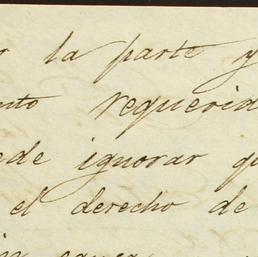 r la parte y
nto requerid
ede ignorar qu
el derecho de